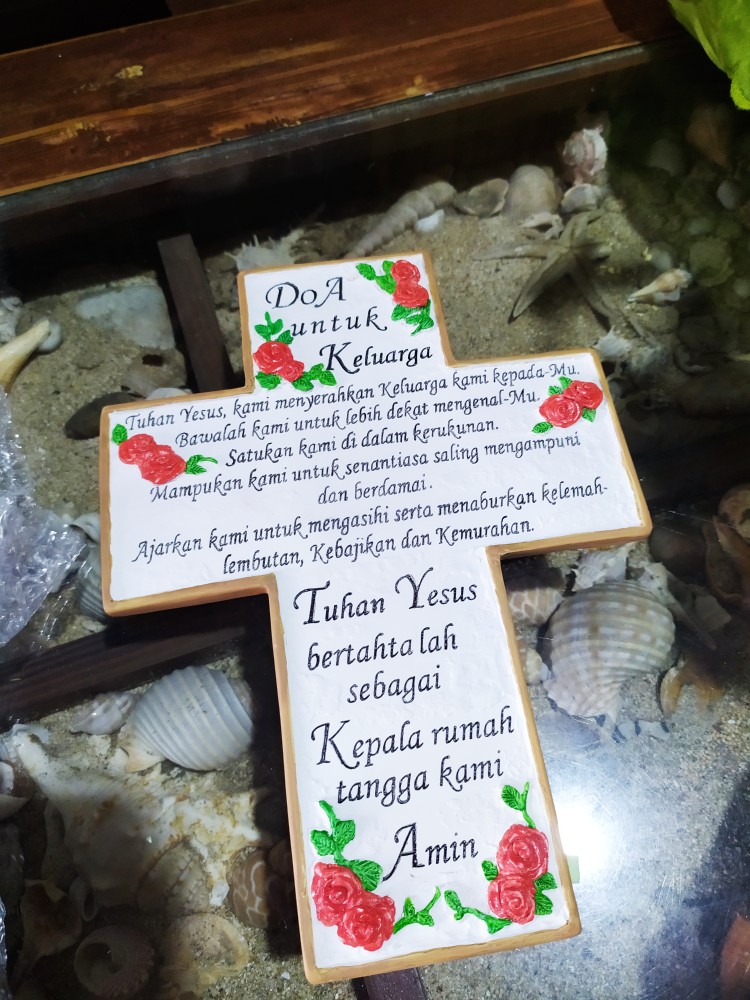 DoA
untuk
Keluarga
Tuhan Yesus, kami menyerahkan Keluarga kami kepada-Mu.
Bawalah kami untuk lebih dekat mengenal-Mu.
Satukan kami di dalam kerukunan.
Mampukan kami untuk senantiasa saling mengampuni
dan berdamai.
Ajarkan kami untuk mengasihi serta menaburkan kelemah-
lembutan, Kebajikan dan Kemurahan.
Tuhan Yesus
bertahtalah
sebagai
Kepala rumah
tangga kami
Amin